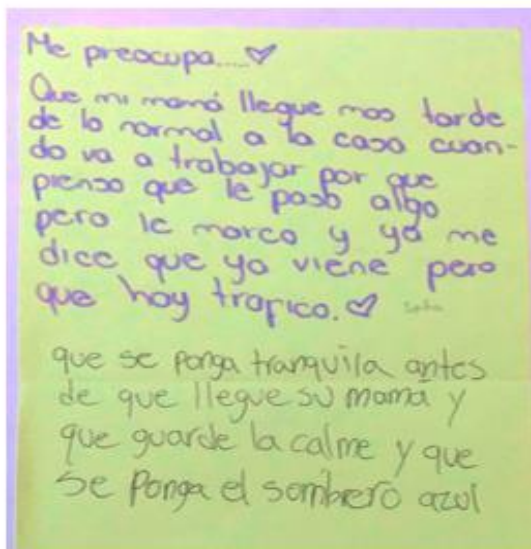 Me preocupa.....♡
Que mi mamá llegue mas tarde
de lo normal a la casa cuan-
do va a trabajar por que
pienso que le pasó algo
pero le marco y ya me
dice que ya viene pero
que hay trafico.♡
que se ponga tranquila antes
de que llegue su mamá y
que guarde la calme y que
se ponga el sombrero azul